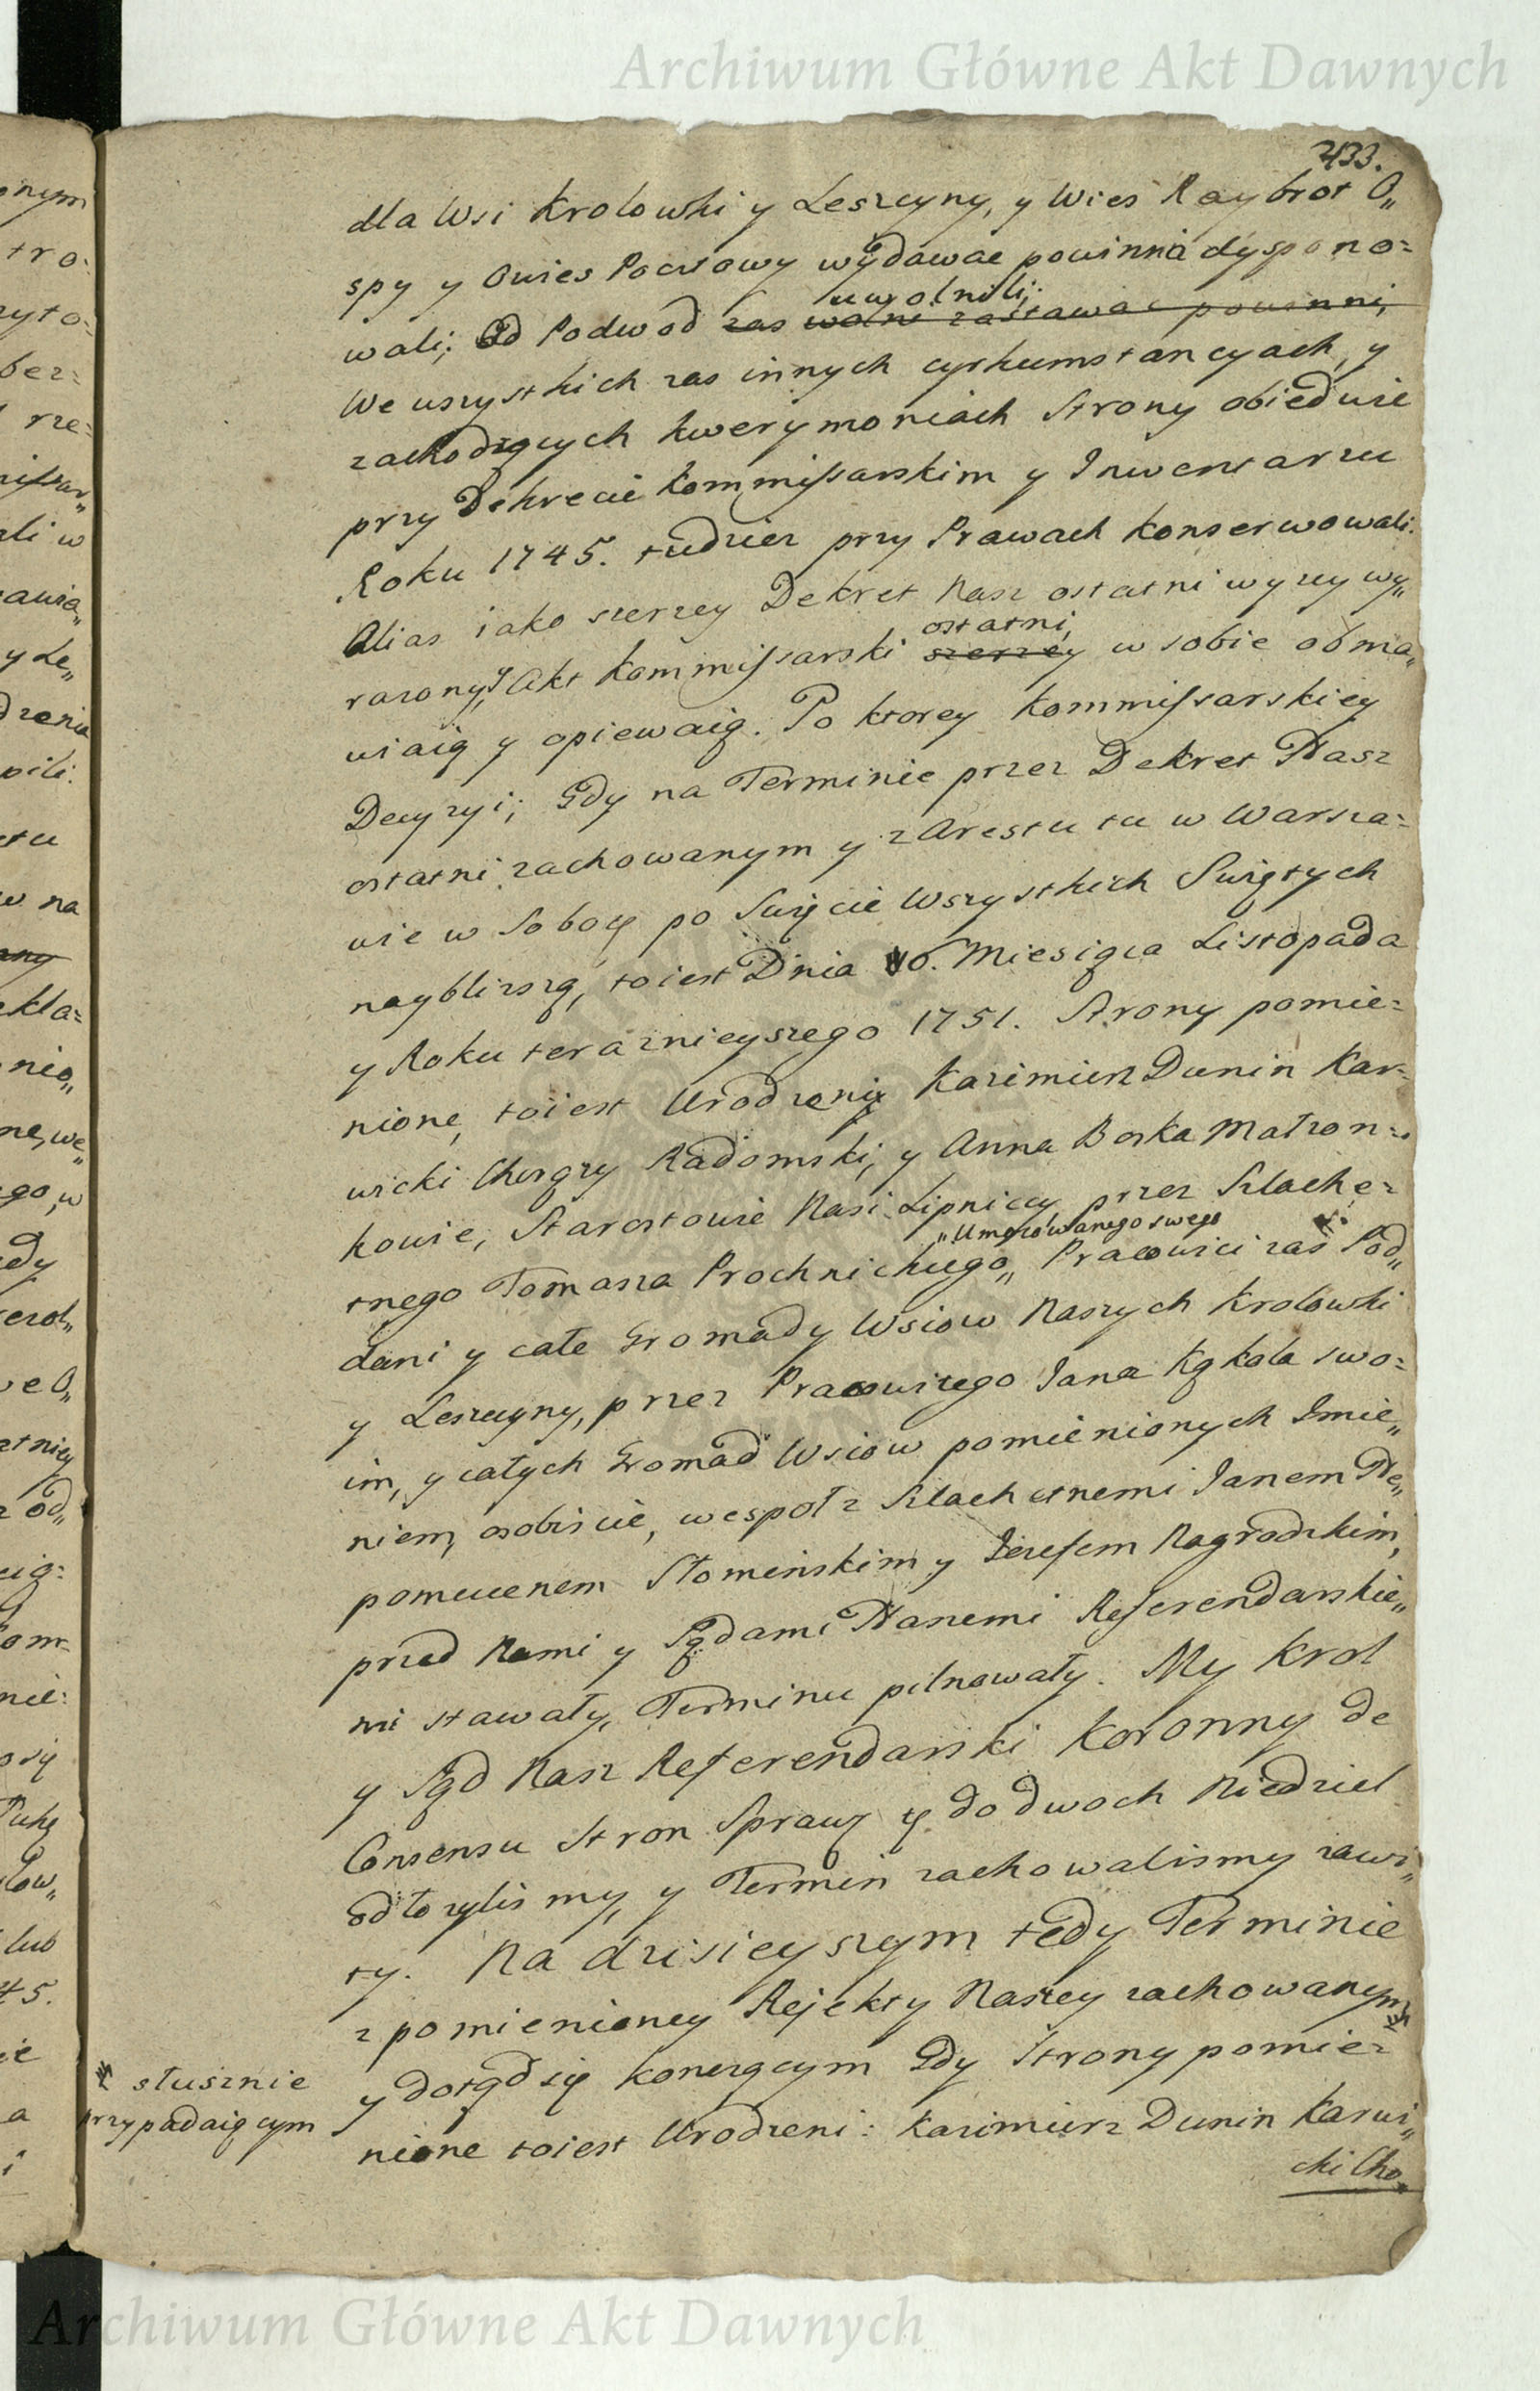 Archiwum Główne Akt Dawnych
433.
dla Wsi Krolowki y Leszczyny, y Wies Raybrot O„
spy y Owies Poczsowy wydawac powinna dyspono=
uwolnili;
wali; Od Podwod zas wolni zastawac powinni,
We wszystkich zas innych cyrkumstancyach, y
zachodzących kwerymoniach Strony obiedwie
przy Dekrecie Kommissarskim y Inwentarzu
Roku 1745. tudziez przy Prawach konserwowali.
Alias iako szerzey Dekret Nasz ostatni wyzey wy„
ostatni,
razony, y Akt Kommissarski szerzey w sobie obma„
wiaią y opiewaią. Po ktorey Kommissarskiey
Decyzyi; Gdy na Terminie przez Dekret Nasz
ostatni zachowanym y z Arestu tu w Warsza=
wie w Sobotę po Swięcie Wszystkich Swiętych
naybliszszą, toiest Dnia 6. Miesiąca Listopada
y Roku teraznieyszego 1751. Strony pomie=
nione, toiest Urodzeni Kazimierz Dunin Kar=
wicki Chorązy Radomski, y Anna Boska Małzon=
kowie, Starostowie Nasi Lipniccy przez Szlache=
„Umocowanego swego
tnego Tomasza Prochnickiego„ Pracowici zas Pod„
dani y całe Gromady Wsiow Naszych Krolowki
y Leszczyny, przez Pracowitego Jana Kąkola swo=
im, y całych Gromad Wsiow pomienionych Imie„
niem, osobiscie, wespoł z Szlachetnemi Janem Ne„
pomucenem Słominskim y Jozefem Nagrodzkim,
przed Nami y Sądami Naszemi Referendarskie„
mi stawały, Terminu pilnowały. My Krol
y Sąd Nasz Referendarski Koronny de
Consensu Stron Sprawę tę do dwoch Niedziel
odłozylismy, y Termin zachowalismy zawi„
ty. Na dzisieyszym tedy Terminie
z pomienioney Rejekty Naszey zachowanym
y dotąd się konczącym Gdy Strony pomie=
nione toiest Urodzeni: Kazimierz Dunin Karwi„
cki Cho„
słusznie
przypadaiącym
Archiwum Główne Akt Dawnych